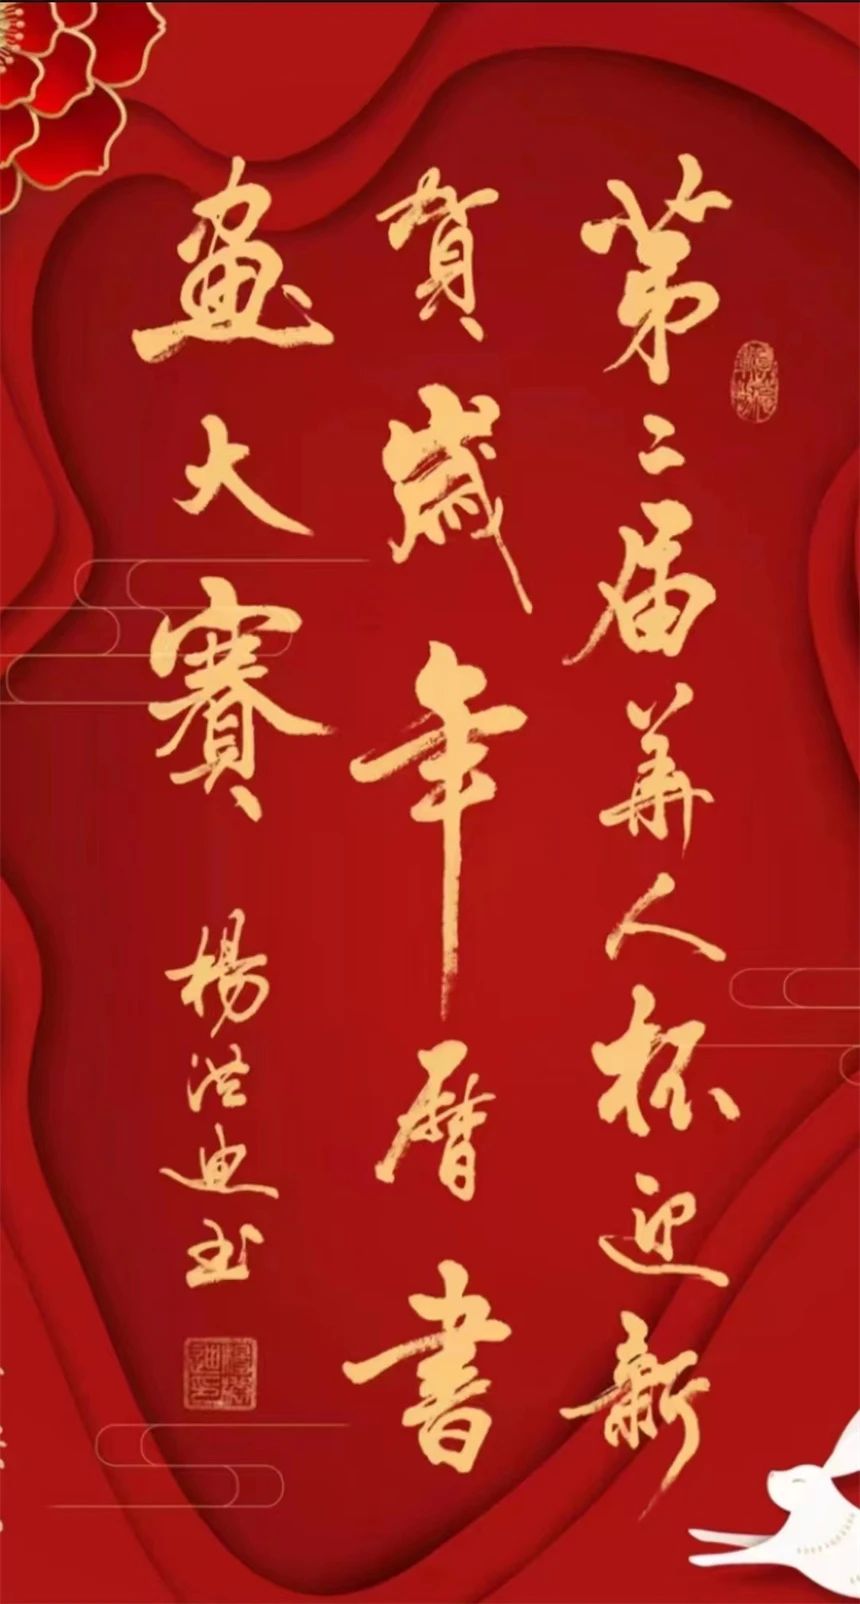 第二届華人杯迎新
賀歲年曆書
畫大賽
楊洪迪